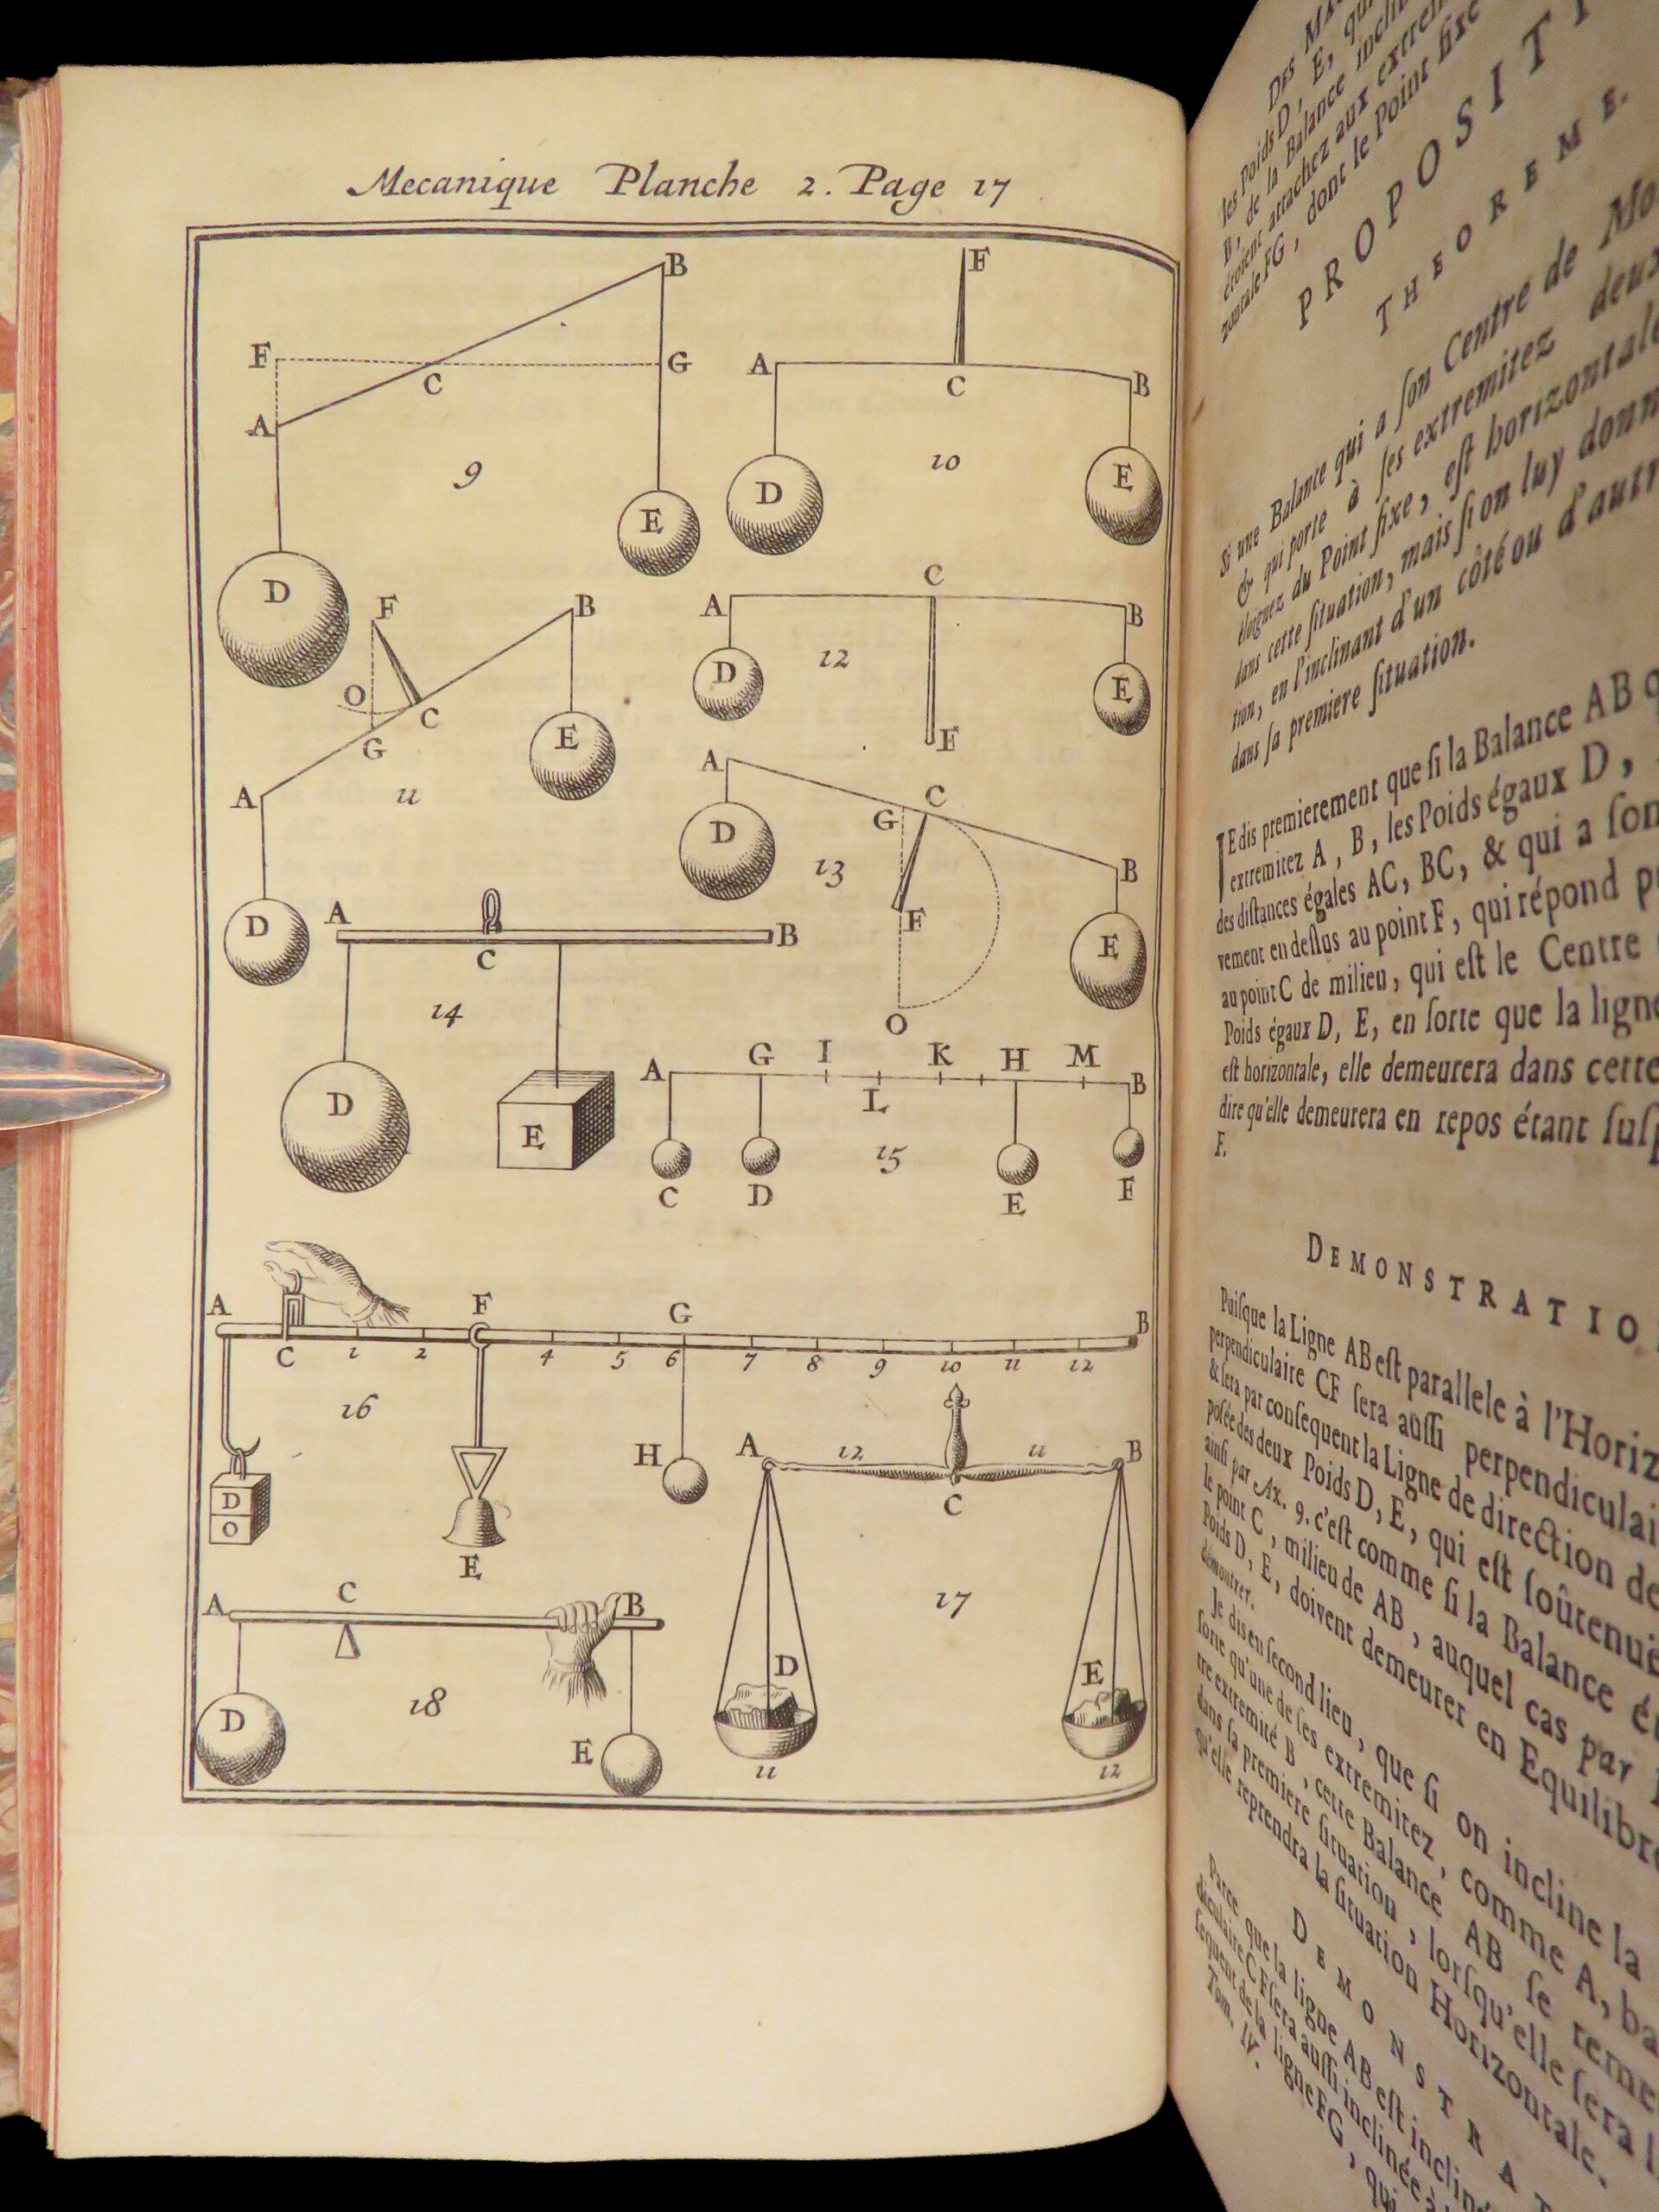 Mecanique Planche 2. Page 17
B
F
F
G
A
C
C
B
A
9
10
D
E
D
E
F
B
A
C
B
O
C
G
12
D
E
E
F
A
11
A
C
G
B
D
13
F
E
D
O
A
B
C
14
D
E
A
G
I
K
H
M
B
L
15
C
D
E
F
A
F
G
B
C
1
2
4
5
6
7
8
9
10
11
12
16
H
D
O
E
A
12
11
B
C
17
D
E
11
12
A
C
B
18
D
E
les Poids D, E, qu
B, de la Balance incli
étoient attachez aux extrem
zontale FG, dont le Point fixe
PROPOSIT
THEOREME.
Si une Balance qui a son Centre de Mo
& qui porte à ses extremitez deux
éloignez du Point fixe, est horizontale
dans cette situation, mais si on luy donn
tion, en l'inclinant d'un côté ou d'autr
dans sa premiere situation.
JE dis premierement que si la Balance AB q
extremitez A, B, les Poids égaux D,
des distances égales AC, BC, & qui a son
vement en dessus au point F, qui répond p
au point C de milieu, qui est le Centre
Poids égaux D, E, en sorte que la ligne
est horizontale, elle demeurera dans cette
dire qu'elle demeurera en repos étant susp
F.
DEMONSTRATIO
Puisque la Ligne AB est parallele à l'Horiz
perpendiculaire CF sera aussi perpendiculai
& sera par consequent la Ligne de direction de
posée des deux Poids D, E, qui est soûtenuë
ainsi par Ax. 9. c'est comme si la Balance ét
le point C, milieu de AB, auquel cas par
Poids D, E, doivent demeurer en Equilibre
démontrer.
Je dis en second lieu, que si on incline la
sorte qu'une de ses extremitez, comme A, ba
tre extremité B, cette Balance AB se reme
dans sa premiere situation, lorsqu'elle sera l
qu'elle reprendra la situation Horizontale.
DEMONSTRAT
Parce que la ligne AB est inclin
diculaire CF sera aussi inclinée à
sequent de la ligne FG, qui
Tom. IV.